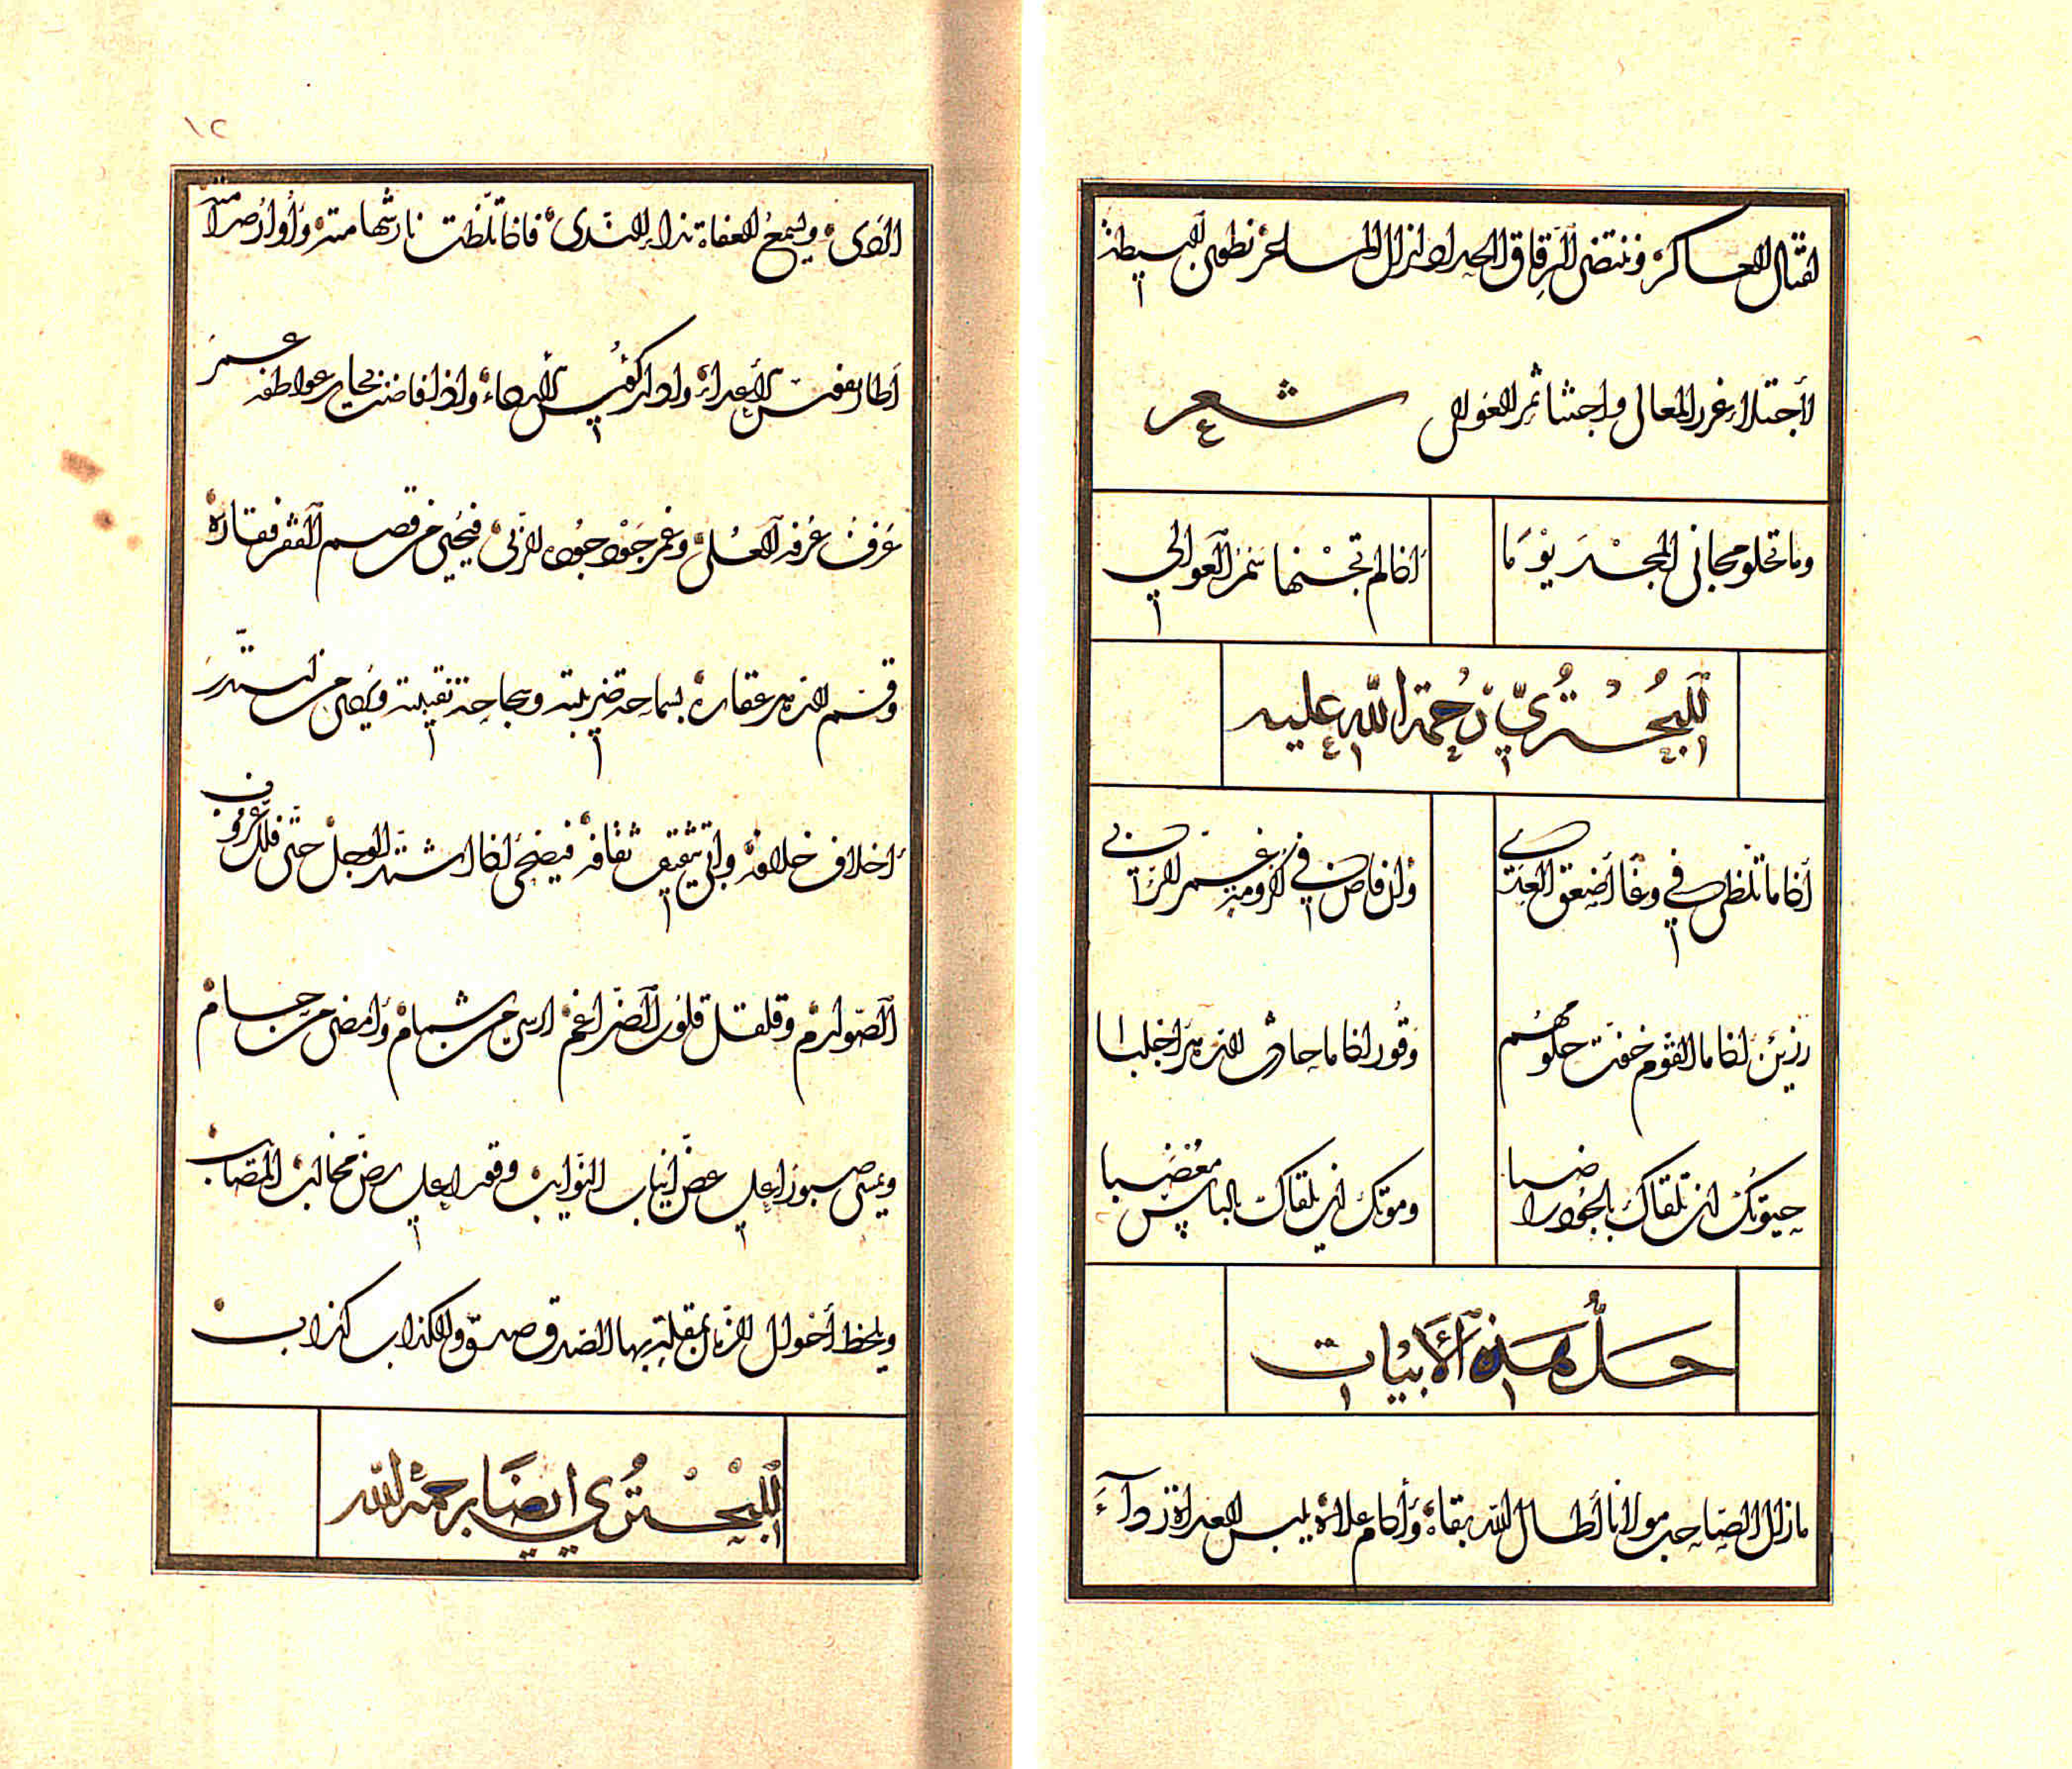 لقتال العساكر وننتضي الرقاق الحداد لنزال المساعر نطوي البسيطة
لأجتلاء غرر المعالي واجتناء ثمر العوالي شعر
وما تحلو مجاني المجد يوما اذا لم تجنها سمر العوالي
للبحتري رحمة الله عليه
اذا ما تلظى في وغا أصعق العدى وان فاض في أكرومة غمر الربى
رزين اذا ما القوم خفت حلومهم وقور اذا ما حادث الدهر اجلبا
حيوتك ان تلقاك بالجود راضيا وموتك ان يلقاك بالباس مغضبا
حل هذه الأبيات
مازال الصاحب مولانا أطال الله بقاه وأدام علاه يلبس العداة رداء
١٢
الردى ويسمع العفاة نداء الندى فاذا تلظت نار شهامته وأوار صرامته
اطار نفس الأعداء وادار كؤس الردى واذا فاضت بحار عواطفه غمر
عرف عرفه العلى وغمر جود جوده الربى فيحيي من قصم الفقر فقاره
وقسم الدهر عقاره بسماحة ضريبته وسجاحة نقيبته ويروي من استدر
أخلاف خلافه وابى تثقيف ثقافه فيضحى اذا اشتد الوجل حتى فلل غروب
الصوارم وقلقل قلوب الضراغم ارسى من شمام وأمضى من حسام
ويمسى صبورا على عض انياب النوايب وقورا على رض مخالب المصايب
ويلحظ أحوال الزمان بمقلة بها الصدق صدق والكذاب كذاب
للبحتري ايضا رحمه الله